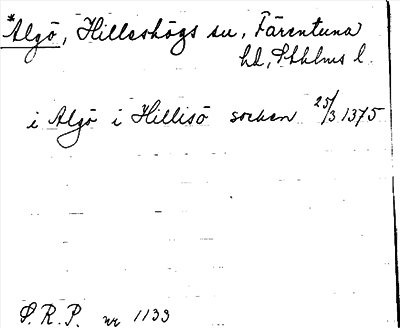 *Algö, Hilleshögs sn, Färentuna
hd, Sthlms l.
i Algö i Hillisö socken 25/3 1375
S. R. P. nr 1133